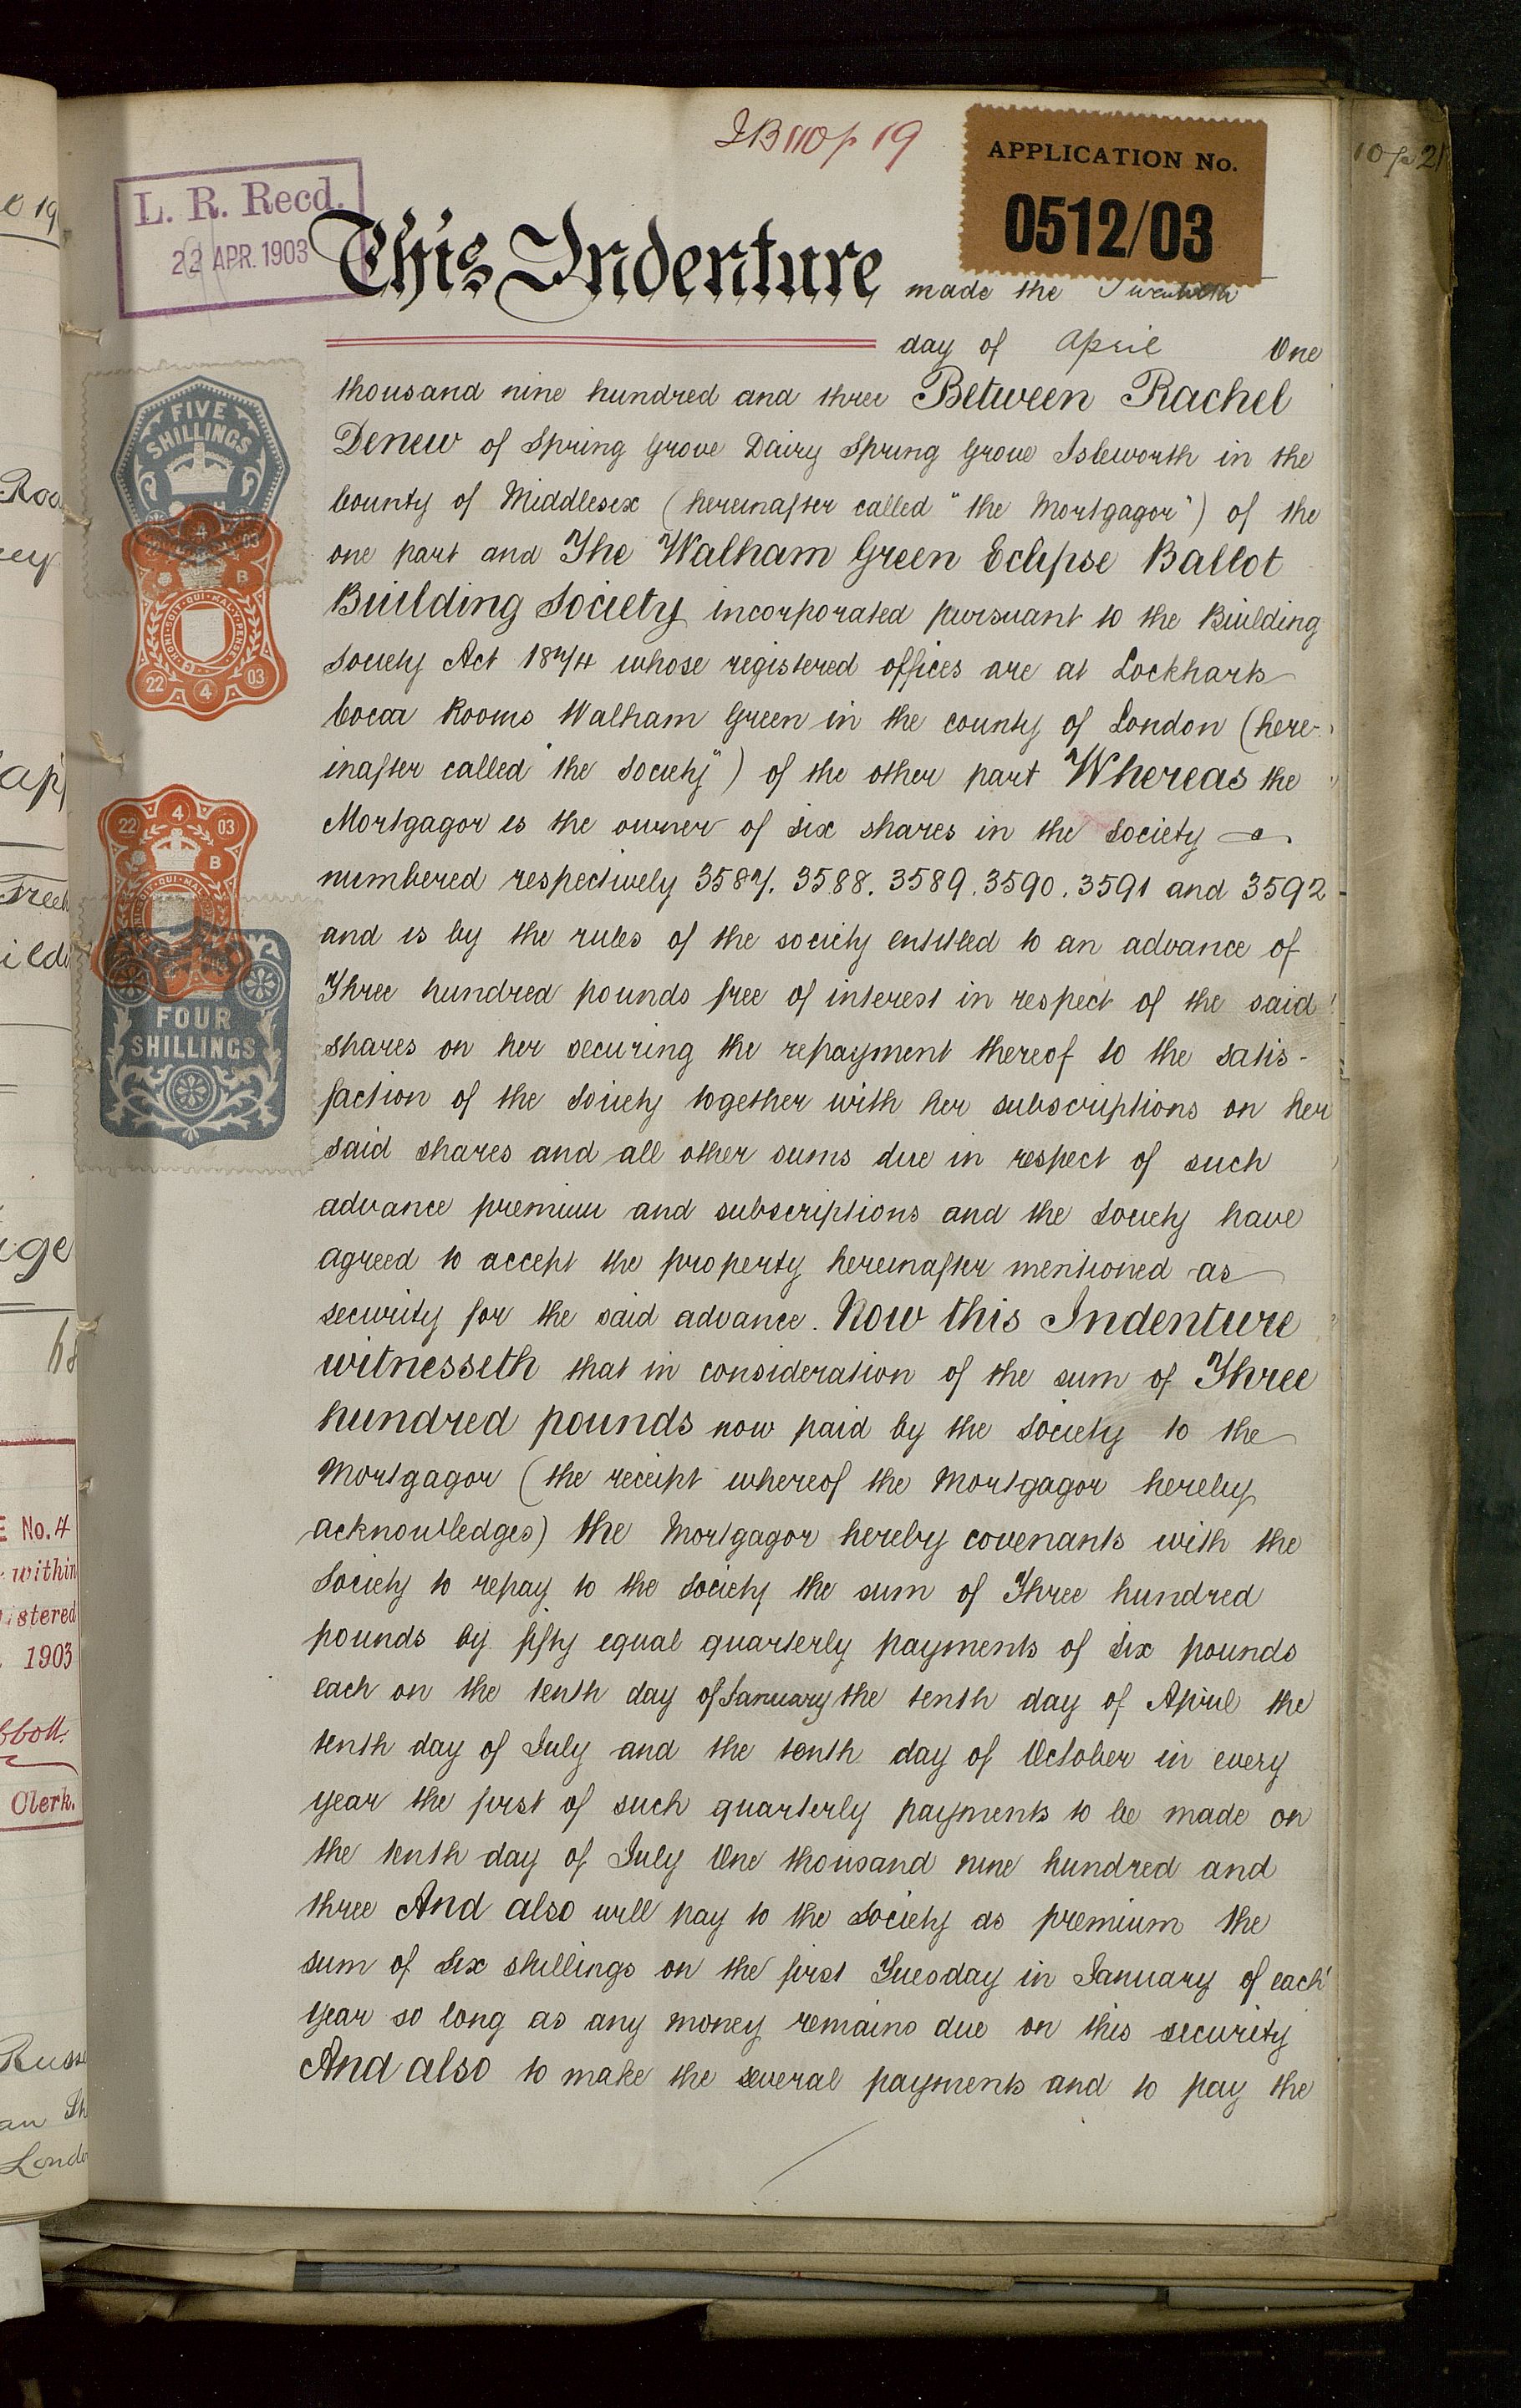 IB 110 p 19
APPLICATION No.
0512/03
10 p 21
L. R. Recd.
22 APR. 1903
This Indenture made the Twentieth
day of April One
thousand nine hundred and three Between Rachel
Denew of Spring Grove Dairy Spring Grove Isleworth in the
County of Middlesex (hereinafter called "the Mortgagor") of the
one part and The Walham Green Eclipse Ballot
Building Society incorporated pursuant to the Building
Society Act 1874 whose registered offices are at Lockharts
Cocoa Rooms Walham Green in the county of London (here-
inafter called "the Society") of the other part Whereas the
Mortgagor is the owner of six shares in the Society
numbered respectively 3587. 3588. 3589. 3590. 3591 and 3592
and is by the rules of the society entitled to an advance of
Three hundred pounds free of interest in respect of the said
shares on her securing the repayment thereof to the satis-
faction of the Society together with her subscriptions on her
said shares and all other sums due in respect of such
advance premium and subscriptions and the Society have
agreed to accept the property hereinafter mentioned as
security for the said advance. Now this Indenture
witnesseth that in consideration of the sum of Three
hundred pounds now paid by the Society to the
Mortgagor (the receipt whereof the Mortgagor hereby
acknowledges) the Mortgagor hereby covenants with the
Society to repay to the Society the sum of Three hundred
pounds by fifty equal quarterly payments of six pounds
each on the tenth day of January the tenth day of April the
tenth day of July and the tenth day of October in every
year the first of such quarterly payments to be made on
the tenth day of July One thousand nine hundred and
three And also will pay to the Society as premium the
sum of six shillings on the first Tuesday in January of each
year so long as any money remains due on this security
And also to make the several payments and to pay the
FIVE
SHILLINGS
4 03
B
HONI·SOIT·QUI·MAL·Y·PENSE
22 4 03
22 4 03
B
FOUR
SHILLINGS
No. 4
within
istered
1903
Clerk.